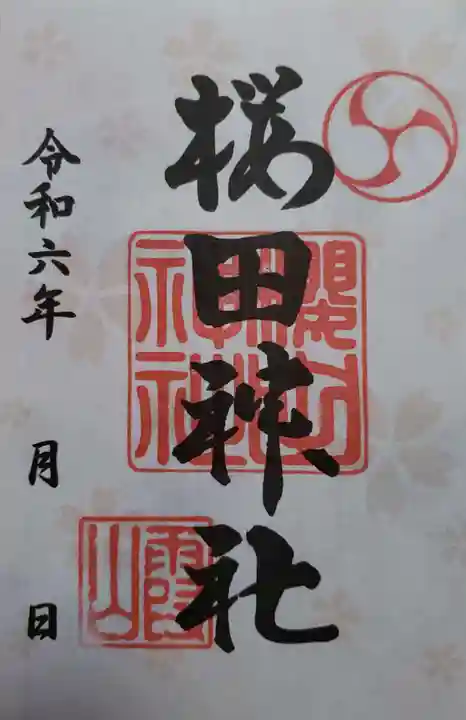 桜田神社
令和六年 月 日
霞山